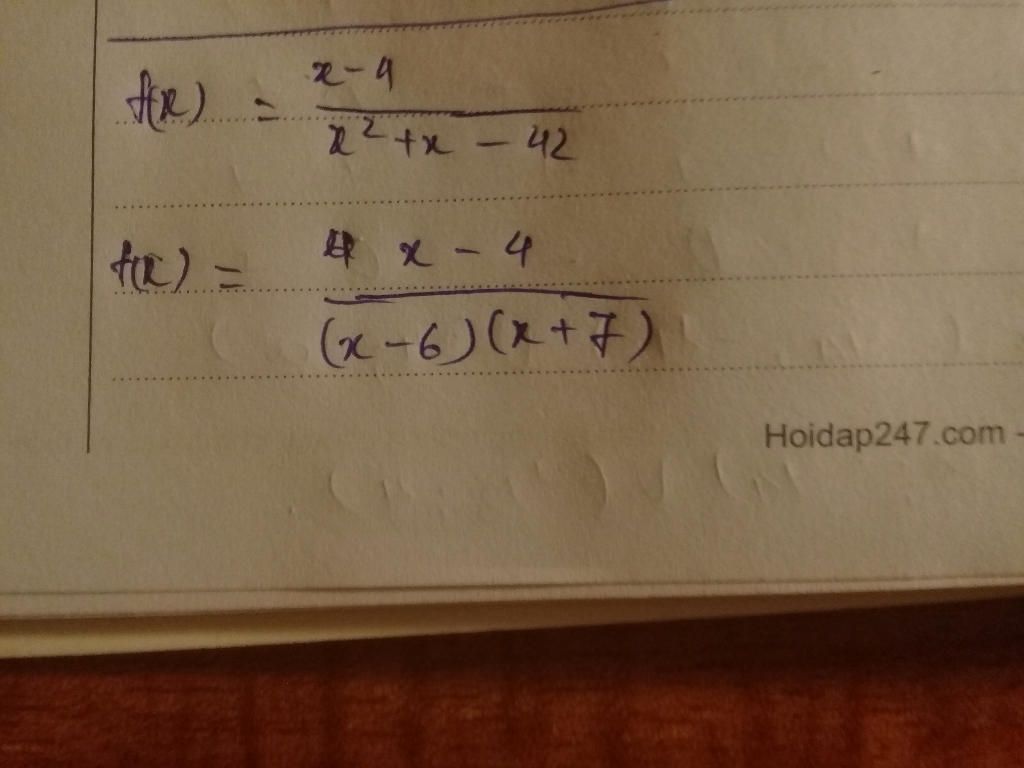 f(x) = x - 4 / x² + x - 42
f(x) = x - 4 / (x - 6)(x + 7)
Hoidap247.com -